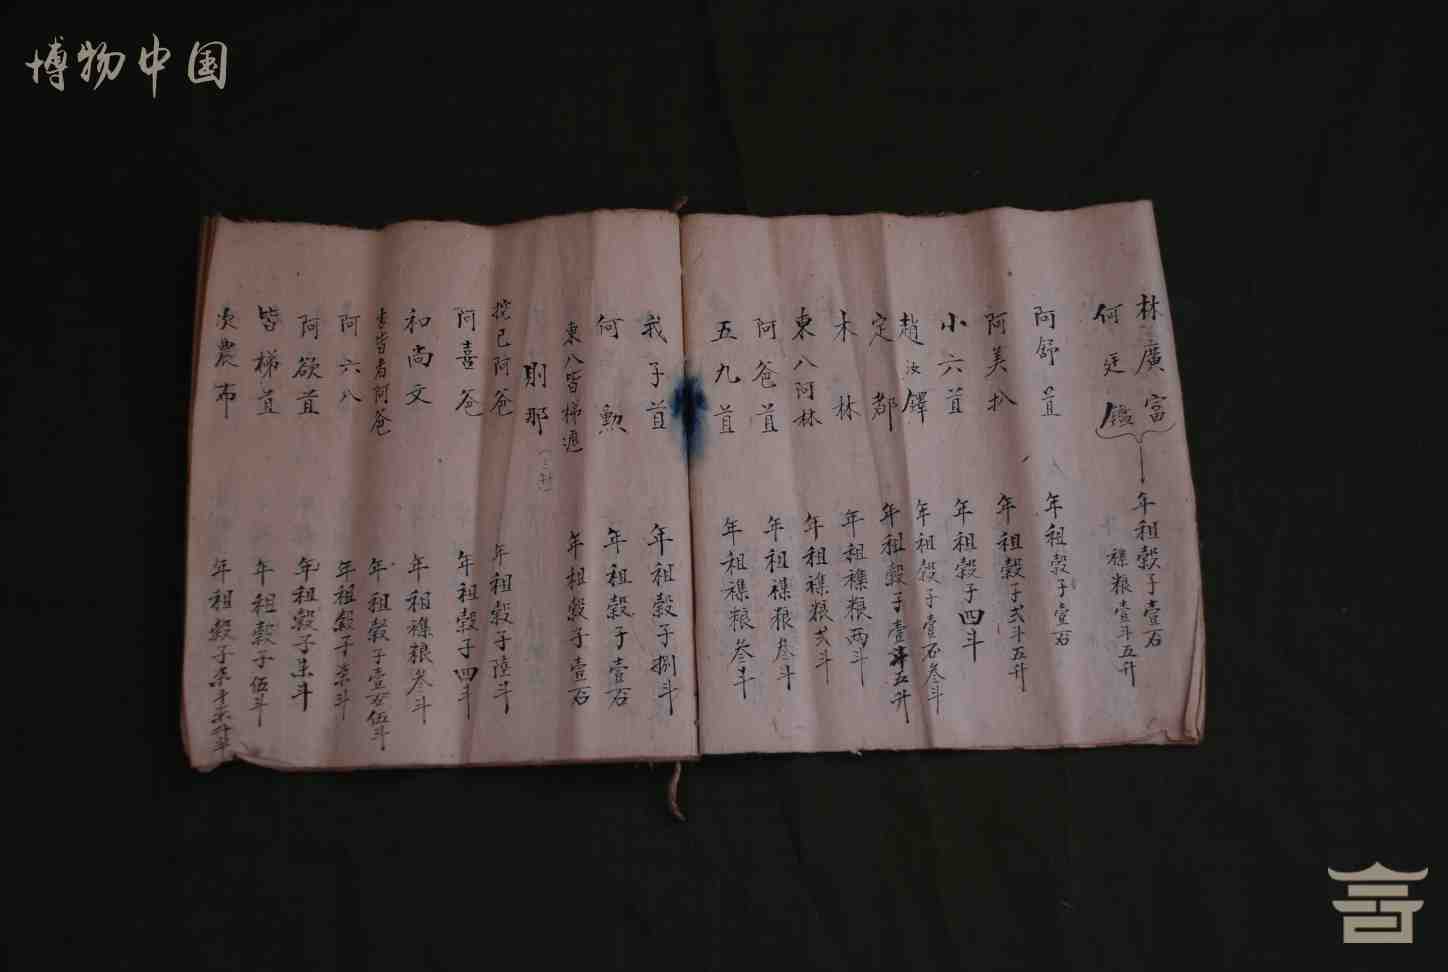 博物中国
林廣富
何廷鑑
年租穀子壹石
襍粮壹斗五升
阿舒苴
年租穀子壹石
阿美扒
年租穀子弍斗五升
小六苴
年租穀子四斗
趙汝鐸
年租穀子壹石叁斗
定都
年租穀子壹斗五升
木林
年租襍粮两斗
東八阿林
年租襍粮弍斗
阿爸苴
年租襍粮叁斗
五九苴
年租襍粮叁斗
我子苴
年租穀子捌斗
何勲
年租穀子壹石
東八皆梯遮
年租穀子壹石
則那
挖已阿爸
年租穀子陸斗
阿喜爸
年租穀子四斗
和尚文
年租襍粮叁斗
皆者阿爸
年租穀子壹石伍斗
阿六八
年租穀子柒斗
阿欲苴
年租穀子柒斗
皆梯苴
年租穀子伍斗
農布
年租穀子柒斗